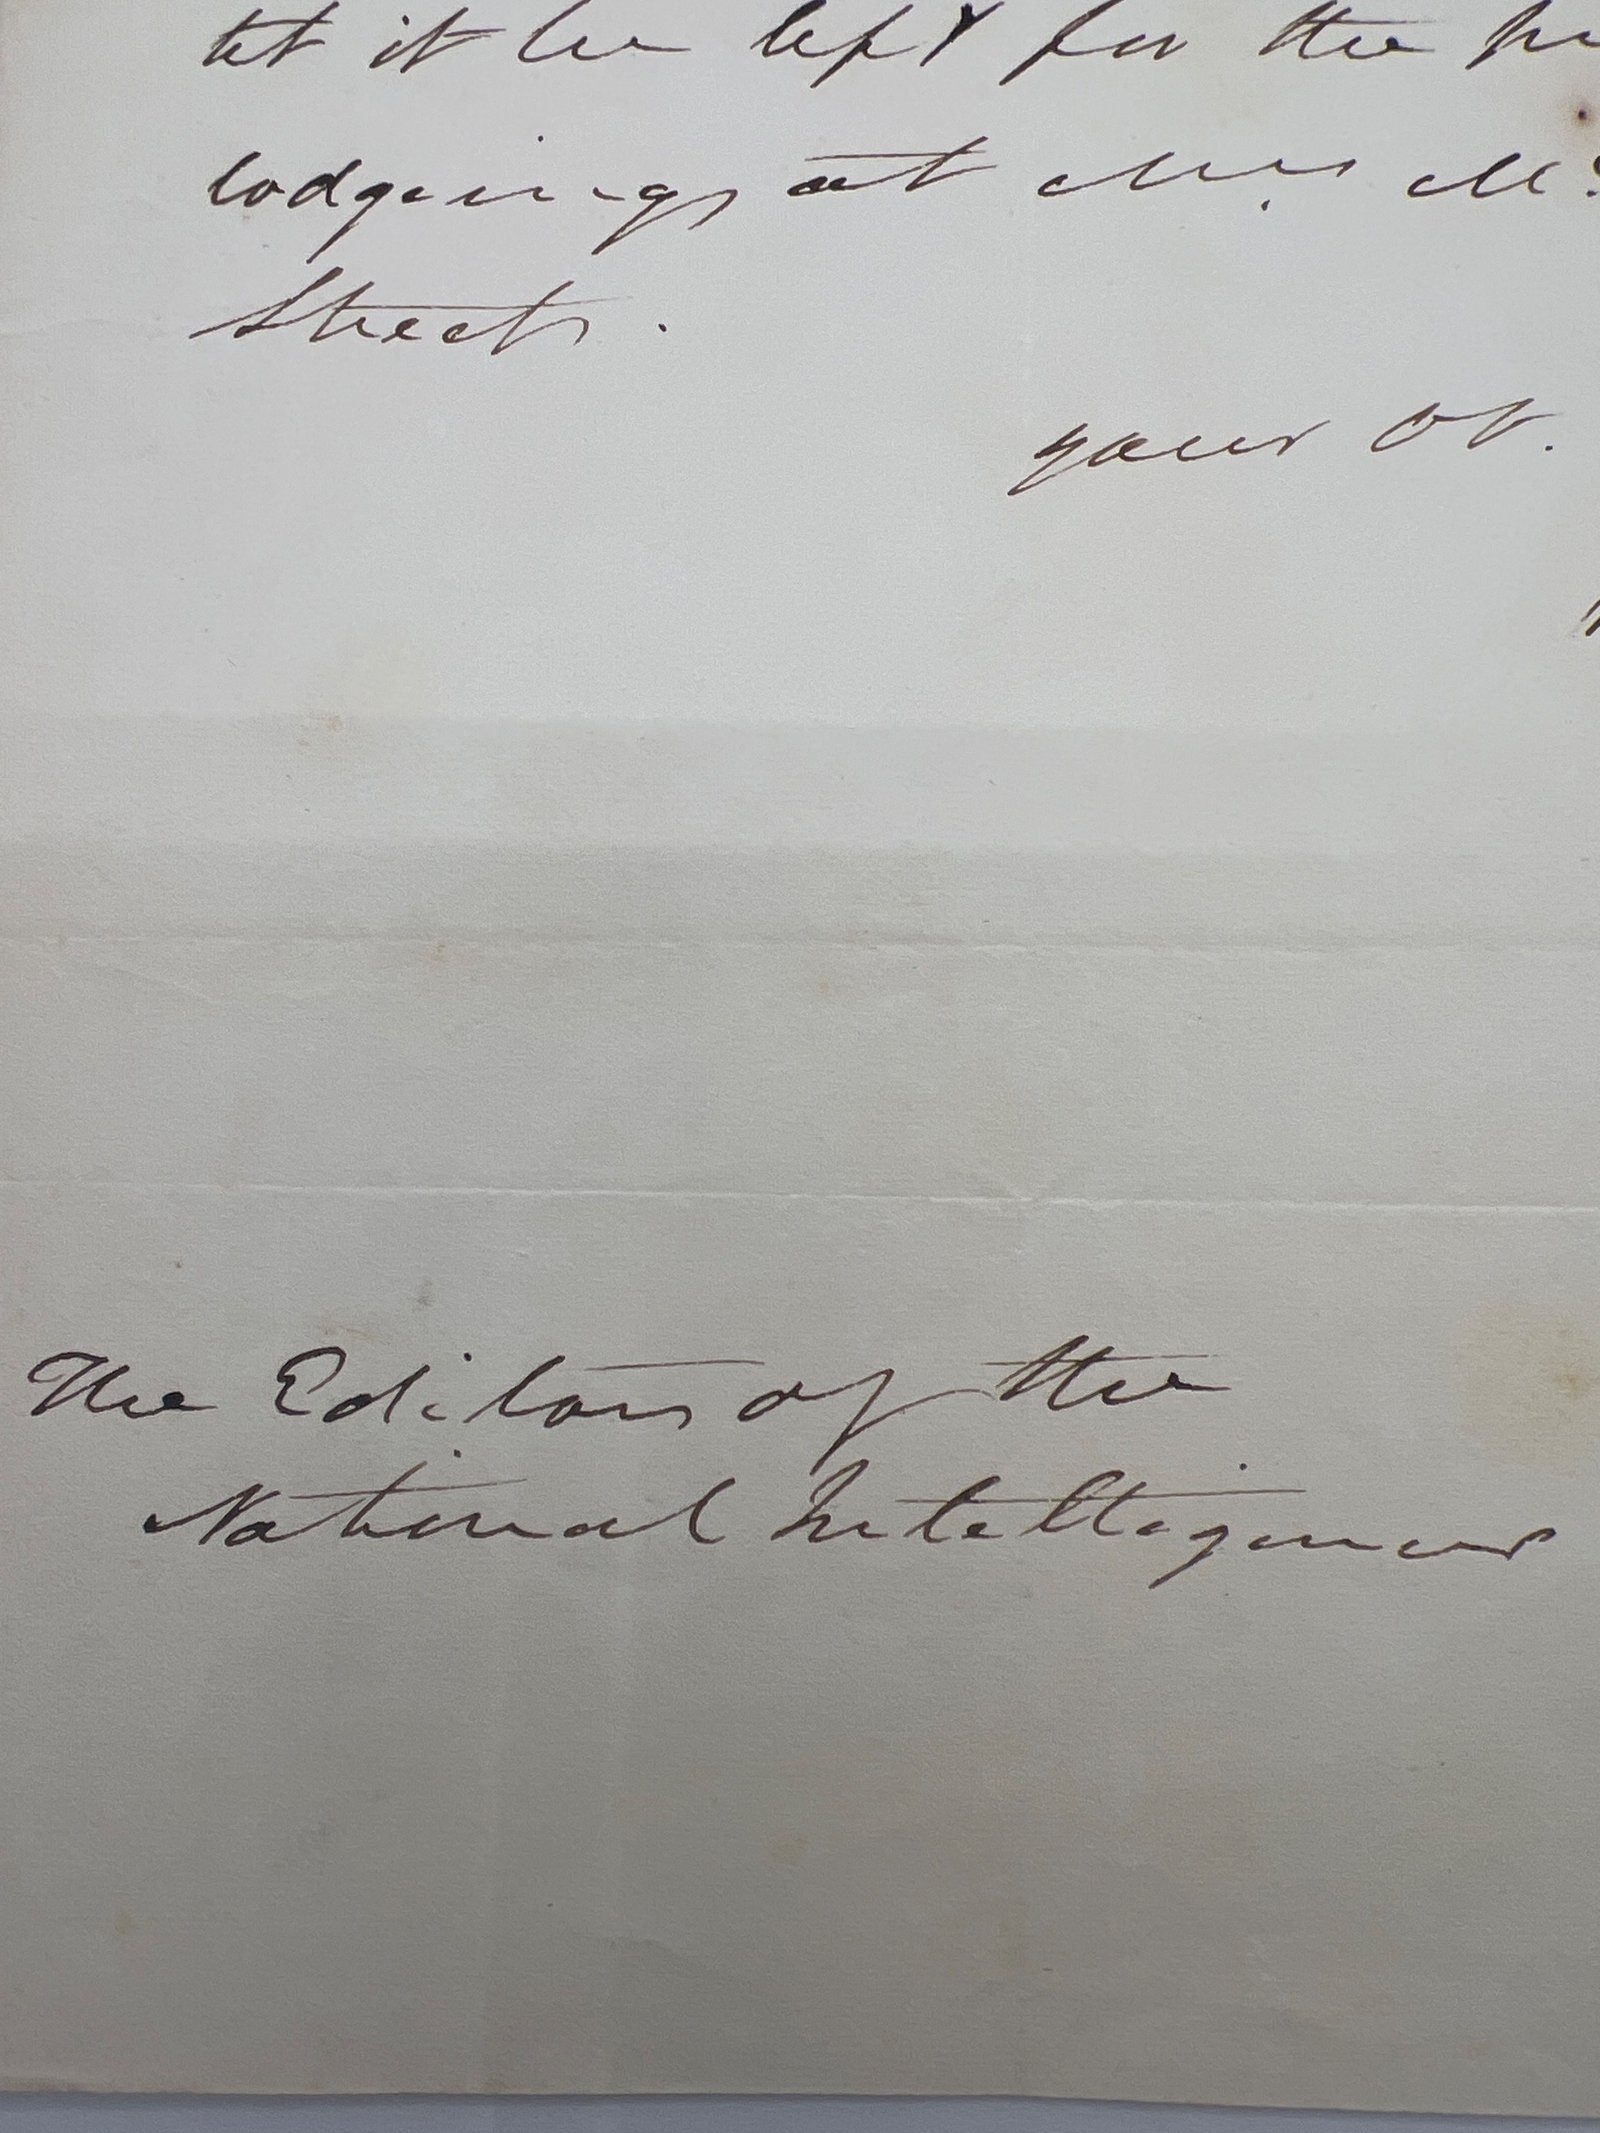 let it be left for the
lodgings at Mrs. Mc
Streets.
your Ob.
The Editors of the
National Intelligencer